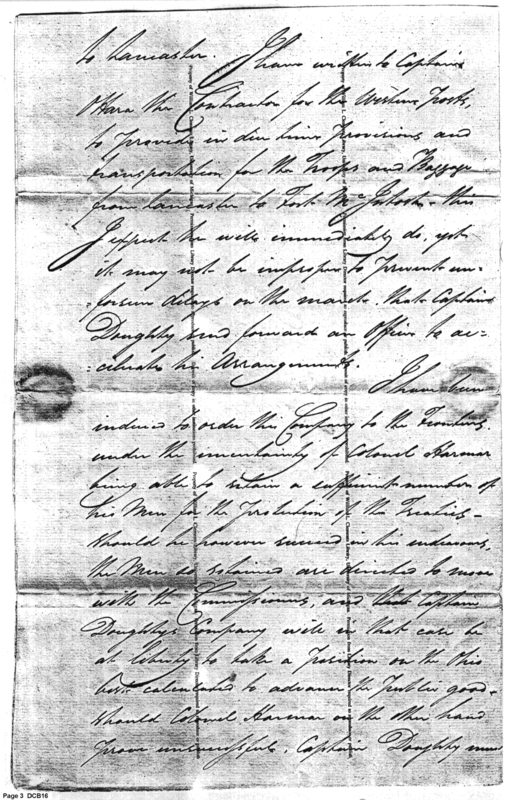 to Lancaster. I have written to Captain
OHara the Contractor for the Western Posts,
to provide in due time Provisions and
transportation for the Troops and Baggage
from Lancaster to Fort McIntosh - this
I expect he will immediately do, yet
it may not be improper to prevent un-
-forseen delays on the march, that Captain
Doughty send forward an Officer to ac-
-celerate the Arrangements.
I have been
induced to order this Company to the Frontiers,
under the uncertainty of Colonel Harmar
being able to retain a sufficient number of
his Men for the Protection of the Treaties -
should he however succeed in his endeavours,
the Men so retained are directed to move
with the Commissioners, and that Captain
Doughtys Company will in that case be
at liberty to take a Position on the Ohio
best calculated to advance the Public good -
should Colonel Harmar on the other hand
prove unsuccessful, Captain Doughty must
Page 3 DCB16